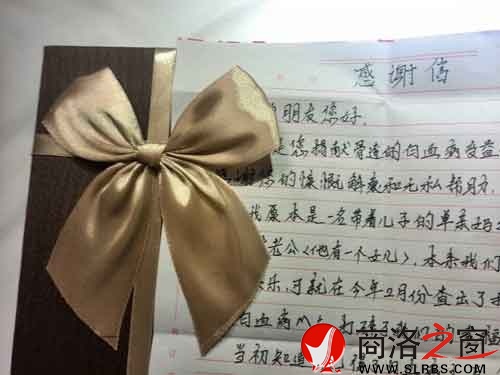 感谢信
朋友您好.
您捐献骨造的白血病受益
你的慷慨解囊和无私帮助.
我原本是一名带着儿子的单亲妈
老公(他有一个女儿),本来我们
乐,可就在今年2月份查出了
白血病M
当初知道
商洛之窗
WWW.SLRBS.COM